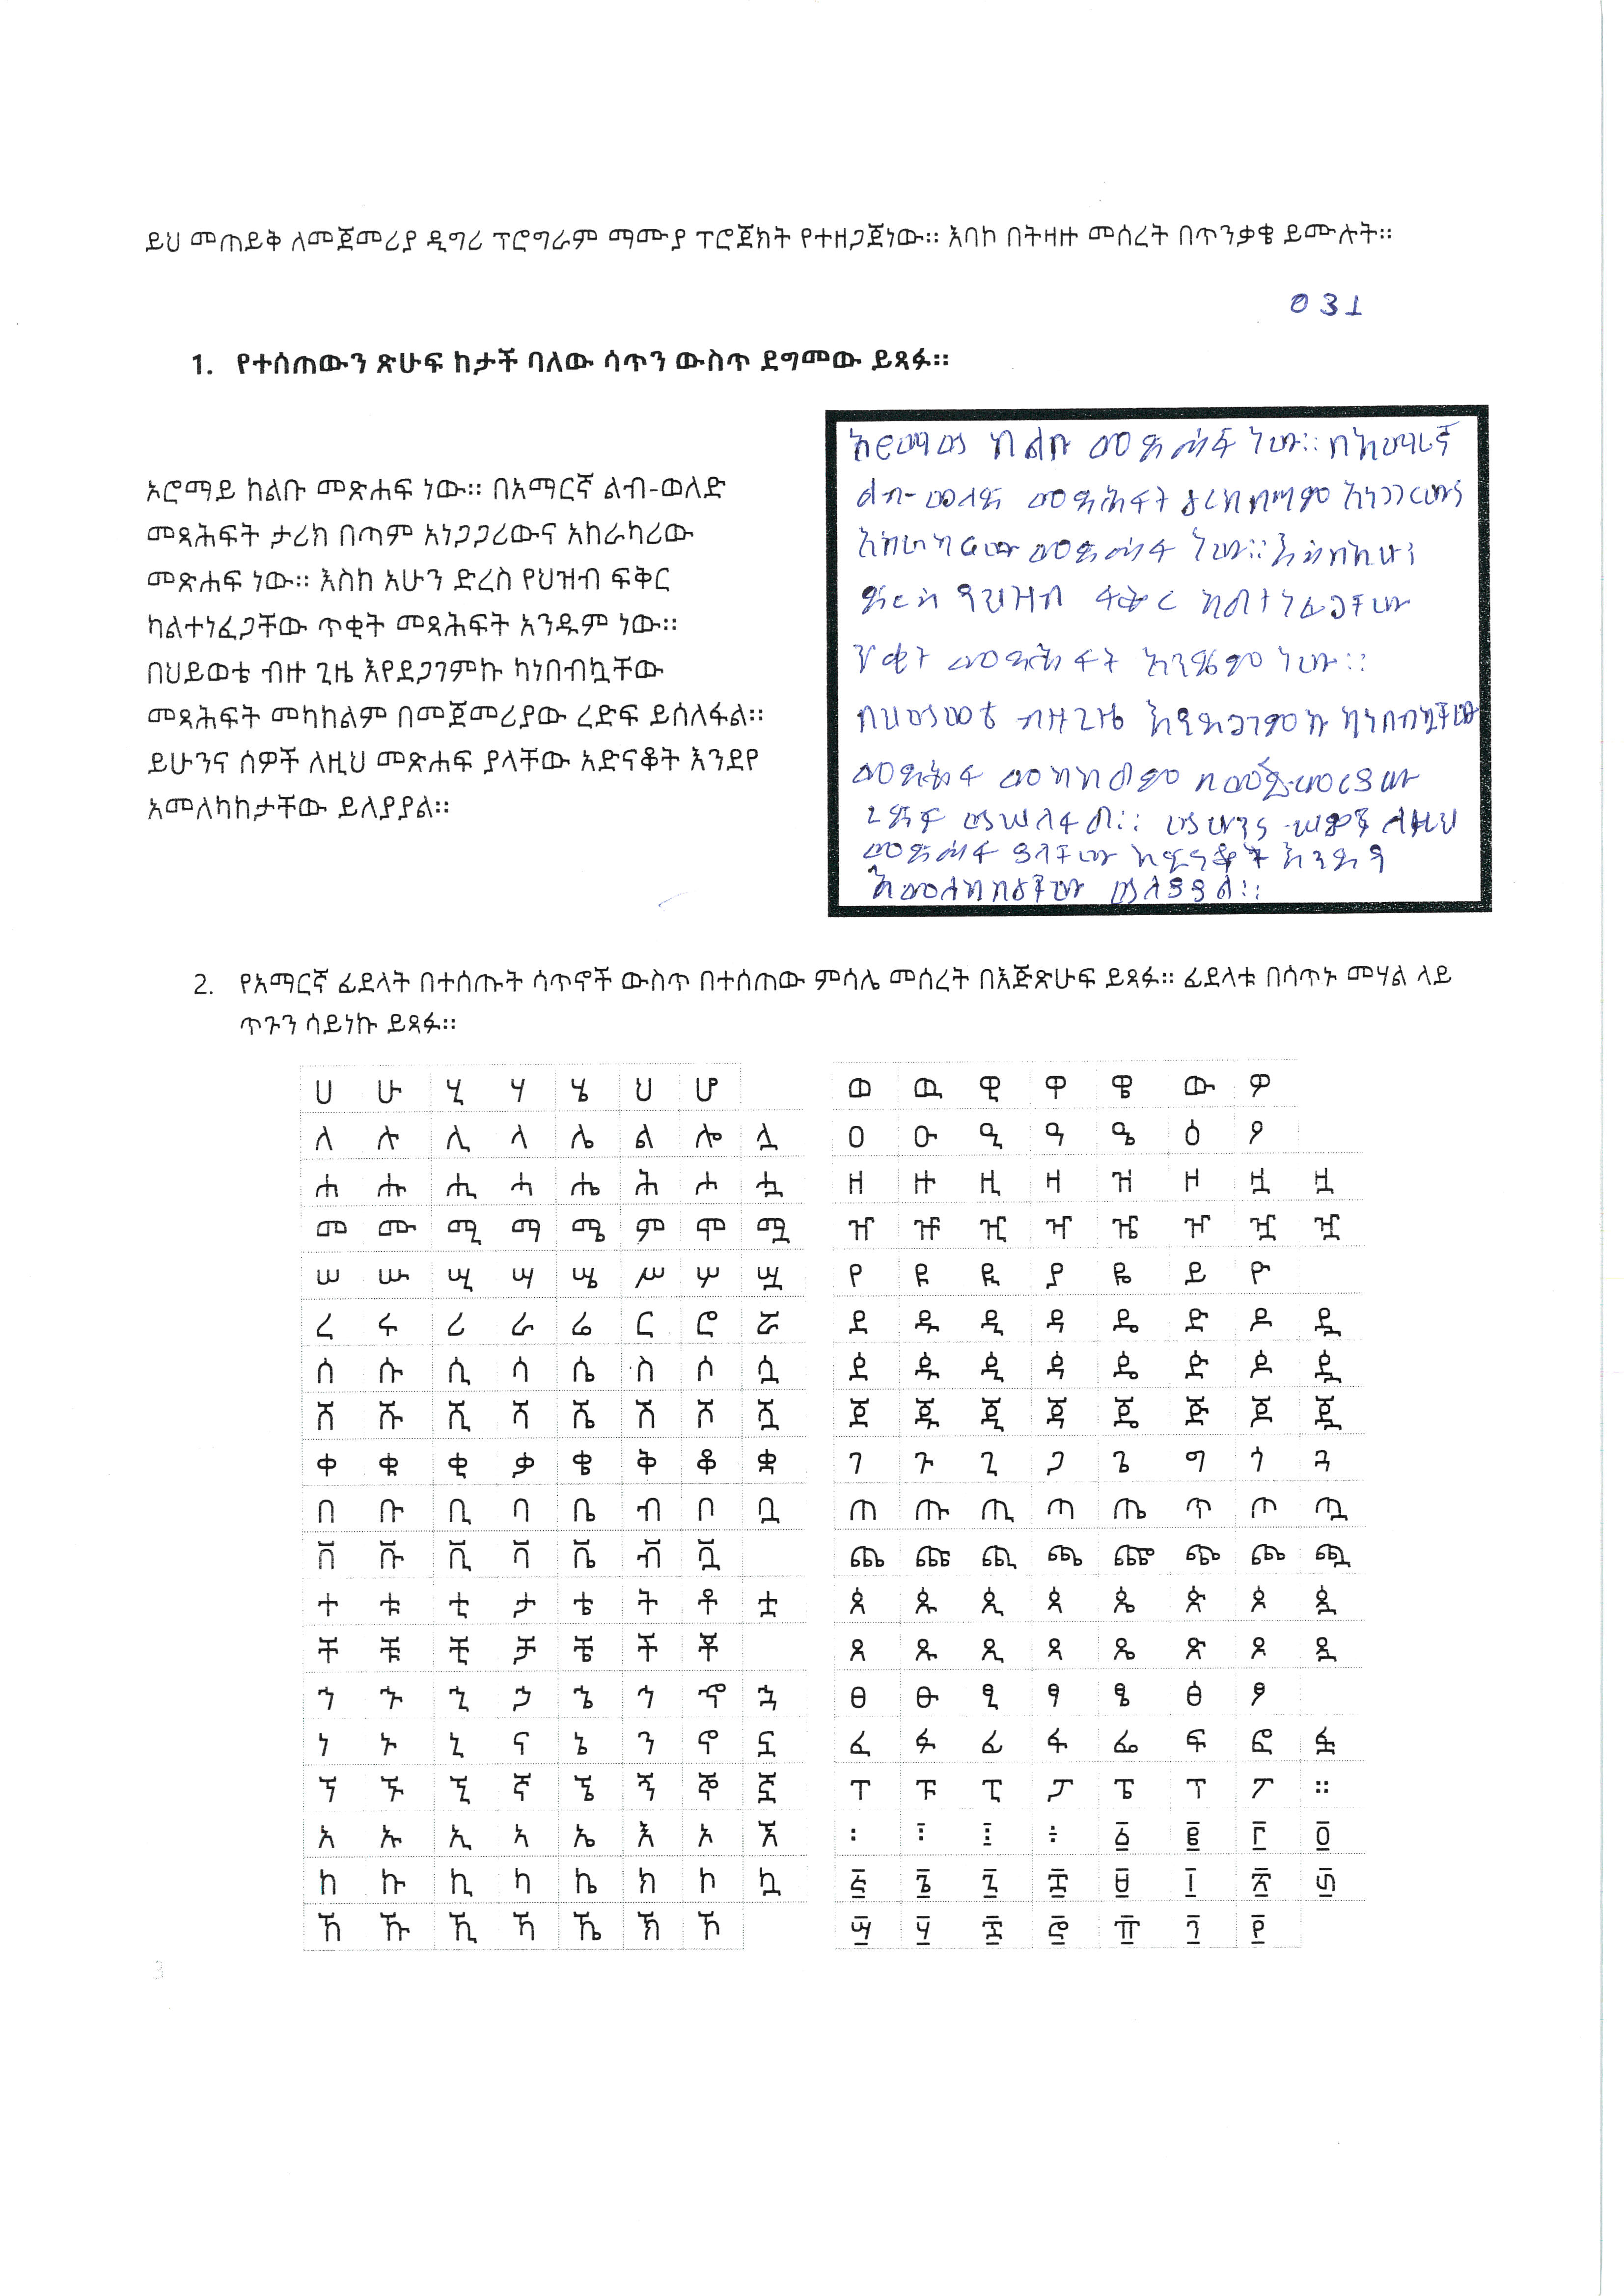 ይህ መጠይቅ ለመጀመሪያ ዲግሪ ፕሮግራም ማሙያ ፕሮጀክት የተዘጋጀነው። እባኮ በትዛዙ መሰረት በጥንቃቄ ይሙሉት።
031
1. የተሰጠውን ጽሁፍ ከታች ባለው ሳጥን ውስጥ ደግመው ይጻፉ።
ኦሮማይ ከልቡ መጽሐፍ ነው። በአማርኛ ልብ-ወለድ
መጻሕፍት ታሪክ በጣም አነጋጋሪውና አከራካሪው
መጽሐፍ ነው። እስከ አሁን ድረስ የህዝብ ፍቅር
ካልተነፈጋቸው ጥቂት መጻሕፍት አንዱም ነው።
በህይወቴ ብዙ ጊዜ እየደጋገምኩ ካነበብኳቸው
መጻሕፍት መካከልም በመጀመሪያው ረድፍ ይሰለፋል።
ይሁንና ሰዎች ለዚህ መጽሐፍ ያላቸው አድናቆት እንደየ
አመለካከታቸው ይለያያል።
ኦሮማይ ከልቡ መጽሐፍ ነው። በአማርኛ
ልብ-ወለድ መጻሕፍት ታሪክ በጣም አነጋጋሪውና
አከራካሪው መጽሐፍ ነው። እስከ አሁን
ድረስ የህዝብ ፍቅር ካልተነፈጋቸው
ጥቂት መጻሕፍት አንዱም ነው።
በህይወቴ ብዙ ጊዜ እየደጋገምኩ ካነበብኳቸው
መጻሕፍ መካከልም በመጀመሪያው
ረድፍ ይሠለፋል። ይሁንና ሠዎች ለዚህ
መጽሐፍ ያላቸው አድናቆት እንደየ
አመለካከታቸው ይለያያል።
2. የአማርኛ ፊደላት በተሰጡት ሳጥኖች ውስጥ በተሰጠው ምሳሌ መሰረት በእጅጽሁፍ ይጻፉ። ፊደላቱ በሳጥኑ መሃል ላይ
ጥጉን ሳይነኩ ይጻፉ።
ሀ ሁ ሂ ሃ ሄ ህ ሆ
ለ ሉ ሊ ላ ሌ ል ሎ ሏ
ሐ ሑ ሒ ሓ ሔ ሕ ሖ ሗ
መ ሙ ሚ ማ ሜ ም ሞ ሟ
ሠ ሡ ሢ ሣ ሤ ሥ ሦ ሧ
ረ ሩ ሪ ራ ሬ ር ሮ ሯ
ሰ ሱ ሲ ሳ ሴ ስ ሶ ሷ
ሸ ሹ ሺ ሻ ሼ ሽ ሾ ሿ
ቀ ቁ ቂ ቃ ቄ ቅ ቆ ቋ
በ ቡ ቢ ባ ቤ ብ ቦ ቧ
ቨ ቩ ቪ ቫ ቬ ቭ ቯ
ተ ቱ ቲ ታ ቴ ት ቶ ቷ
ቸ ቹ ቺ ቻ ቼ ች ቾ
ኀ ኁ ኂ ኃ ኄ ኅ ኆ ኋ
ነ ኑ ኒ ና ኔ ን ኖ ኗ
ኘ ኙ ኚ ኛ ኜ ኝ ኞ ኟ
አ ኡ ኢ ኣ ኤ እ ኦ ኧ
ከ ኩ ኪ ካ ኬ ክ ኮ ኳ
ኸ ኹ ኺ ኻ ኼ ኽ ኾ
ወ ዉ ዊ ዋ ዌ ው ዎ
ዐ ዑ ዒ ዓ ዔ ዕ ዖ
ዘ ዙ ዚ ዛ ዝ ዞ ዟ ዟ
ዠ ዡ ዢ ዣ ዤ ዦ ዧ ዧ
የ ዩ ዪ ያ ዬ ይ ዮ
ደ ዱ ዲ ዳ ዴ ድ ዶ ዷ
ዸ ዹ ዺ ዻ ዼ ዽ ዾ ዿ
ጀ ጁ ጂ ጃ ጄ ጅ ጆ ጇ
ገ ጉ ጊ ጋ ጌ ግ ጎ ጓ
ጠ ጡ ጢ ጣ ጤ ጥ ጦ ጧ
ጨ ጩ ጪ ጫ ጬ ጭ ጮ ጯ
ጰ ጱ ጲ ጳ ጴ ጵ ጶ ጷ
ጸ ጹ ጺ ጻ ጼ ጽ ጾ ጿ
ፀ ፁ ፂ ፃ ፄ ፅ ፆ
ፈ ፉ ፊ ፋ ፌ ፍ ፎ ፏ
ፐ ፑ ፒ ፓ ፔ ፕ ፖ ።
፡ ፤ ፧ ፥ ፩ ፪ ፫ ፬
፭ ፮ ፯ ፰ ፱ ፲ ፳ ፴
፵ ፶ ፷ ፸ ፹ ፺ ፻